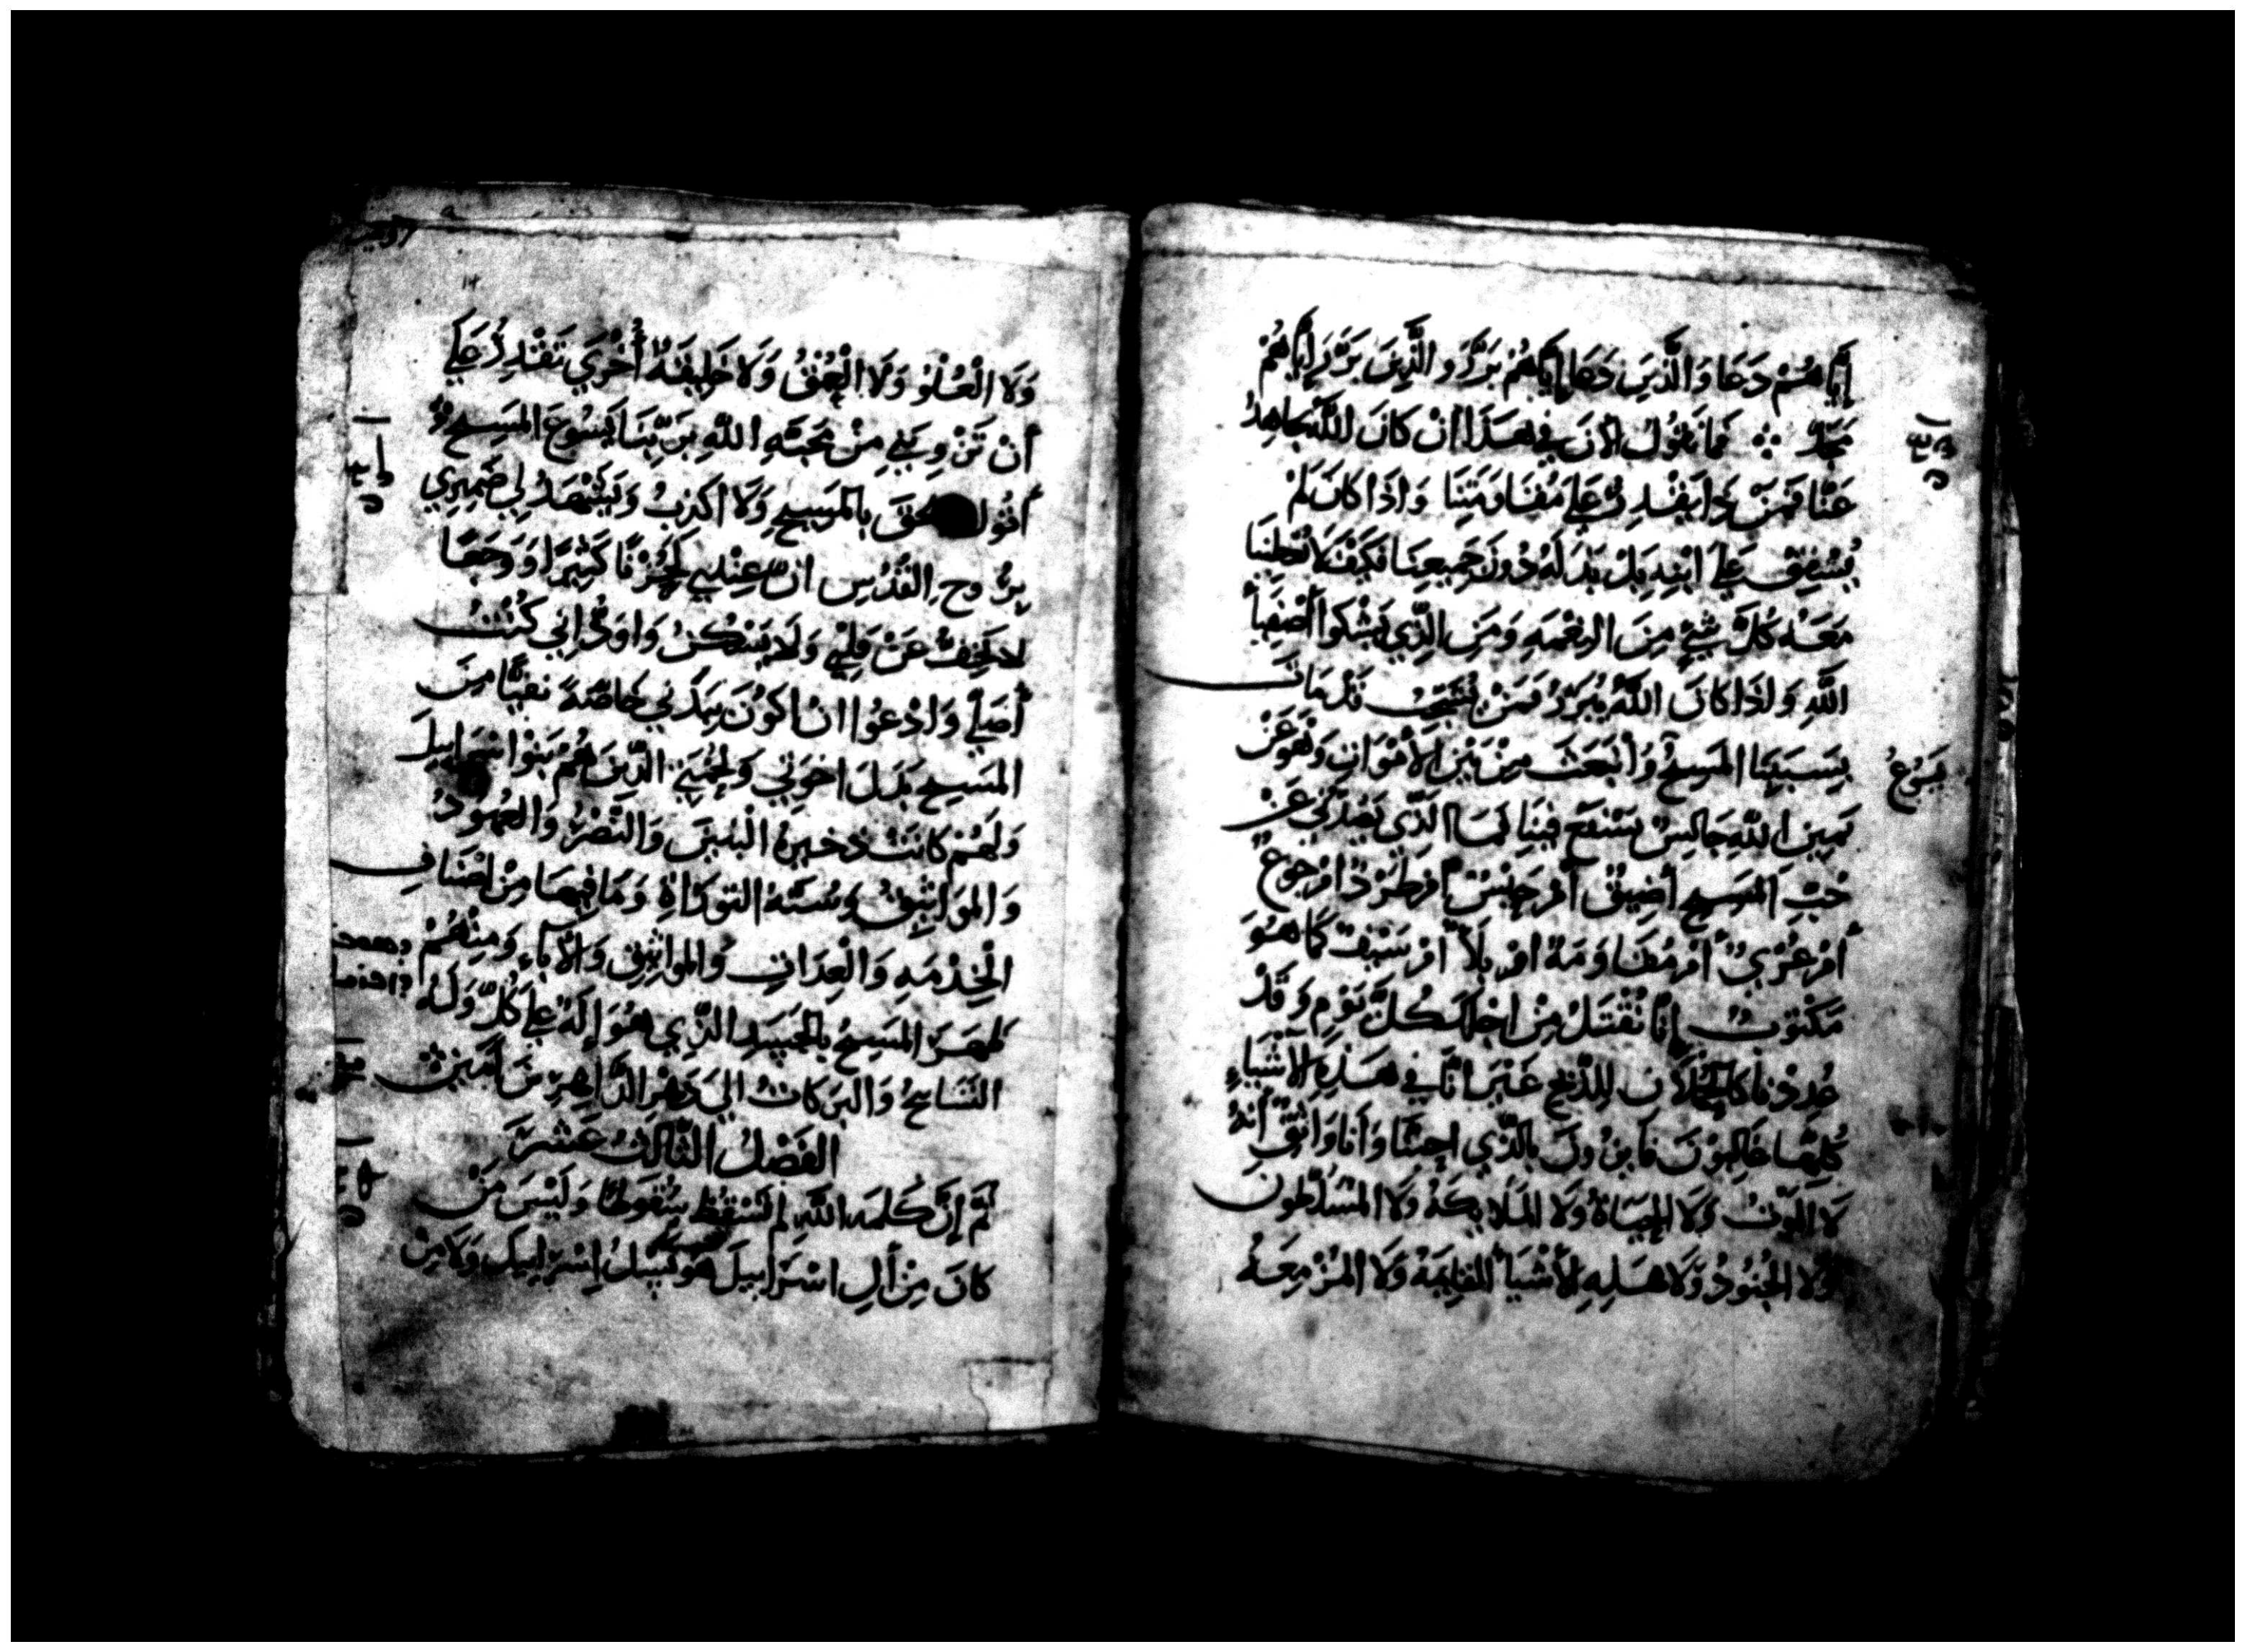 إيَّاهُمْ دَعَا وَالَّذِينَ دَعَا إيَّاهُمْ بَرَّرَ وَالَّذِينَ بَرَّرَ إيَّاهُمْ
مَجَّدَ ∴ فَمَا نَقُولُ الأنَ فِي هَذَا انْ كَانَ اللَّهُ يجَاهِدُ
عَنَّا فَمَنْ ذَا يَقْدِرُ عَلَى مُقَاوَمَتِنَا وَاذَا كَانَ لَمْ
يُشْفِقْ عَلَى ابْنِهِ بَلْ بَذَلَهُ دُونَ جَمِيعِنَا فَكَيْفَ لَا يُعْطِينَا
مَعَهُ كُلَّ شَيْءٍ مِنَ النِعْمَهِ وَمَنِ الَّذِي يَشْكُوا أَصْفِيَاءَ
اللَّهِ وَاذَا كَانَ اللَّهُ يُبَرِّرُ فَمَنْ يُشَجِّبُ قَدْ مَاتَ
بِسَبَبِنَا المَسِيحُ وَانْبَعَثَ مِنْ بَيْنِ الأَمْوَاتِ وَهُوَ عَنْ
يَسُوعُ
يَمِينِ اللَّهِ جَالِسٌ يَشْفَعُ فِينَا فَمَا الَّذِي يَصُدُّنِي عَنْ
حُبِّ المَسِيحِ أَضِيقٌ أَمْ حَبْسٌ أَمْ طَرْدٌ امْ جُوعٌ
أَمْ عُرْيٌ أَمْ مُقَاوَمَهٌ امْ بَلَاءٌ امْ سَيْفٌ كَمَا هُوَ
مَكْتُوبٌ إنَّا نُقْتَلُ مِنْ اجْلِكَ كُلَّ يَوْمٍ وَقَدْ
عُدِدْنَا كَالحُمْلَانِ لِلذَّبْحِ غَيْرَ انَّا فِي هَذِهِ الأَشْيَاءِ
كُلِّهَا غَالِبُونَ فَايِزُونَ بِالَّذِي احَبَّنَا وَأنَا وَاثِقٌ أَنَّهُ
لَا المَوْتُ وَلَا الحَيَاةُ وَلَا المَلَايِكَةُ وَلَا المُسَلَّطُونَ
وَلَا الجُنُودُ وَلَا هَذِهِ الأَشْيَاءُ القَايِمَةُ وَلَا المُزْمِعَهُ
وَلَا الْعُلْوُ وَلَا الْعُمْقُ وَلَا خَلِيقَةٌ أُخْرَي تَقْدِرُ عَلَى
أَنْ تَزْوِيَنِي مِنْ مَحَبَّهِ اللَّهِ بِرَبِّنَا يَسُوعَ المَسِيحِ
أَقُولُ حقَّ بِالمَسِيحِ وَلَا اكذِبُ وَيَشْهَدُ لِي ضَمِيرِي
بِرُوحِ القُدُسِ انَّ عِنْدِي لَحُزْنًا كَثِيرًا وَوَجَعًا
لا يَخِفُّ عَنْ قَلْبِي وَلَا يَسْكُنُ وَاوَدُّ إنِي كُنْتُ
أُصَلِّي وَادْعُوا انْ اكونَ بِبَدَنِي خَاصَّةً نَفِيًّا مِنَ
المَسِيحِ بَدَلَ اخوَتِي وَلَحْمِي الَّذِينَ هُمْ بَنُوا اسْرَايِيلَ
وَلَهُمْ كَانَتْ ذخيرةُ الْبَنِينَ وَالنَّصْرُ وَالعُهُودُ
وَالمَوَاثِيقُ وَسُنَّهُ التوراةِ وَمَا فِيهَا مِنْ اصْنَافِ
الْخِدْمَهِ وَالْعِدَاتِ وَالموَاثِيقِ وَالآبَاءِ وَمِنْهُمْ
ظَهَرَ المَسِيحُ بِالجَسَدِ الَّذِي هُوَ إلَهٌ عَلَى كُلٍّ وَلَهُ
التَّسَابِيحُ وَالبَرَكَاتُ الي دَهْرِ الدَّاهِرِينَ آمَين
الفَصْلُ الثَّالِثَ عَشَرَ
ثُمَّ إنَّ كَلمَه اللَّهِ لم تَسْقُطْ سُقُوطًا وَلَيْسَ مَنْ
كَانَ مِنْ ألِ اسْرَايِيلَ هو إسْرَايِيل وَلَا مِنْ